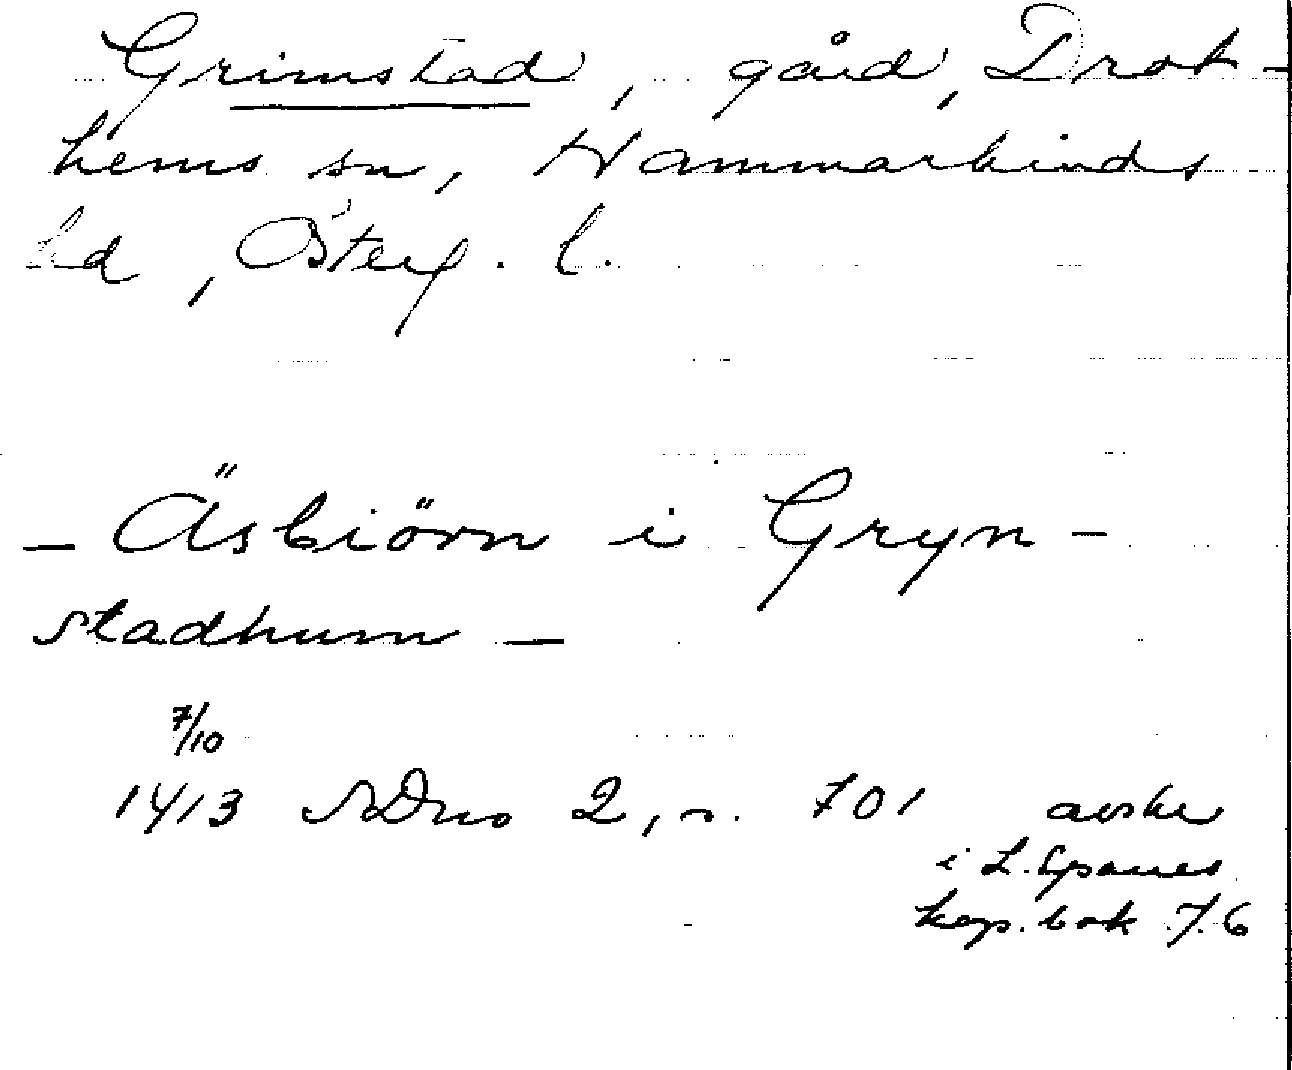 Grimstad, gård, Drot-
hems sn, Hammarkinds
hd, Österg. l.
- Äsbiörn i Gryn-
stadhum -
7/10
1413 SDns 2, s. 701 avskr
i L. Sparres
kop. bok 7.6